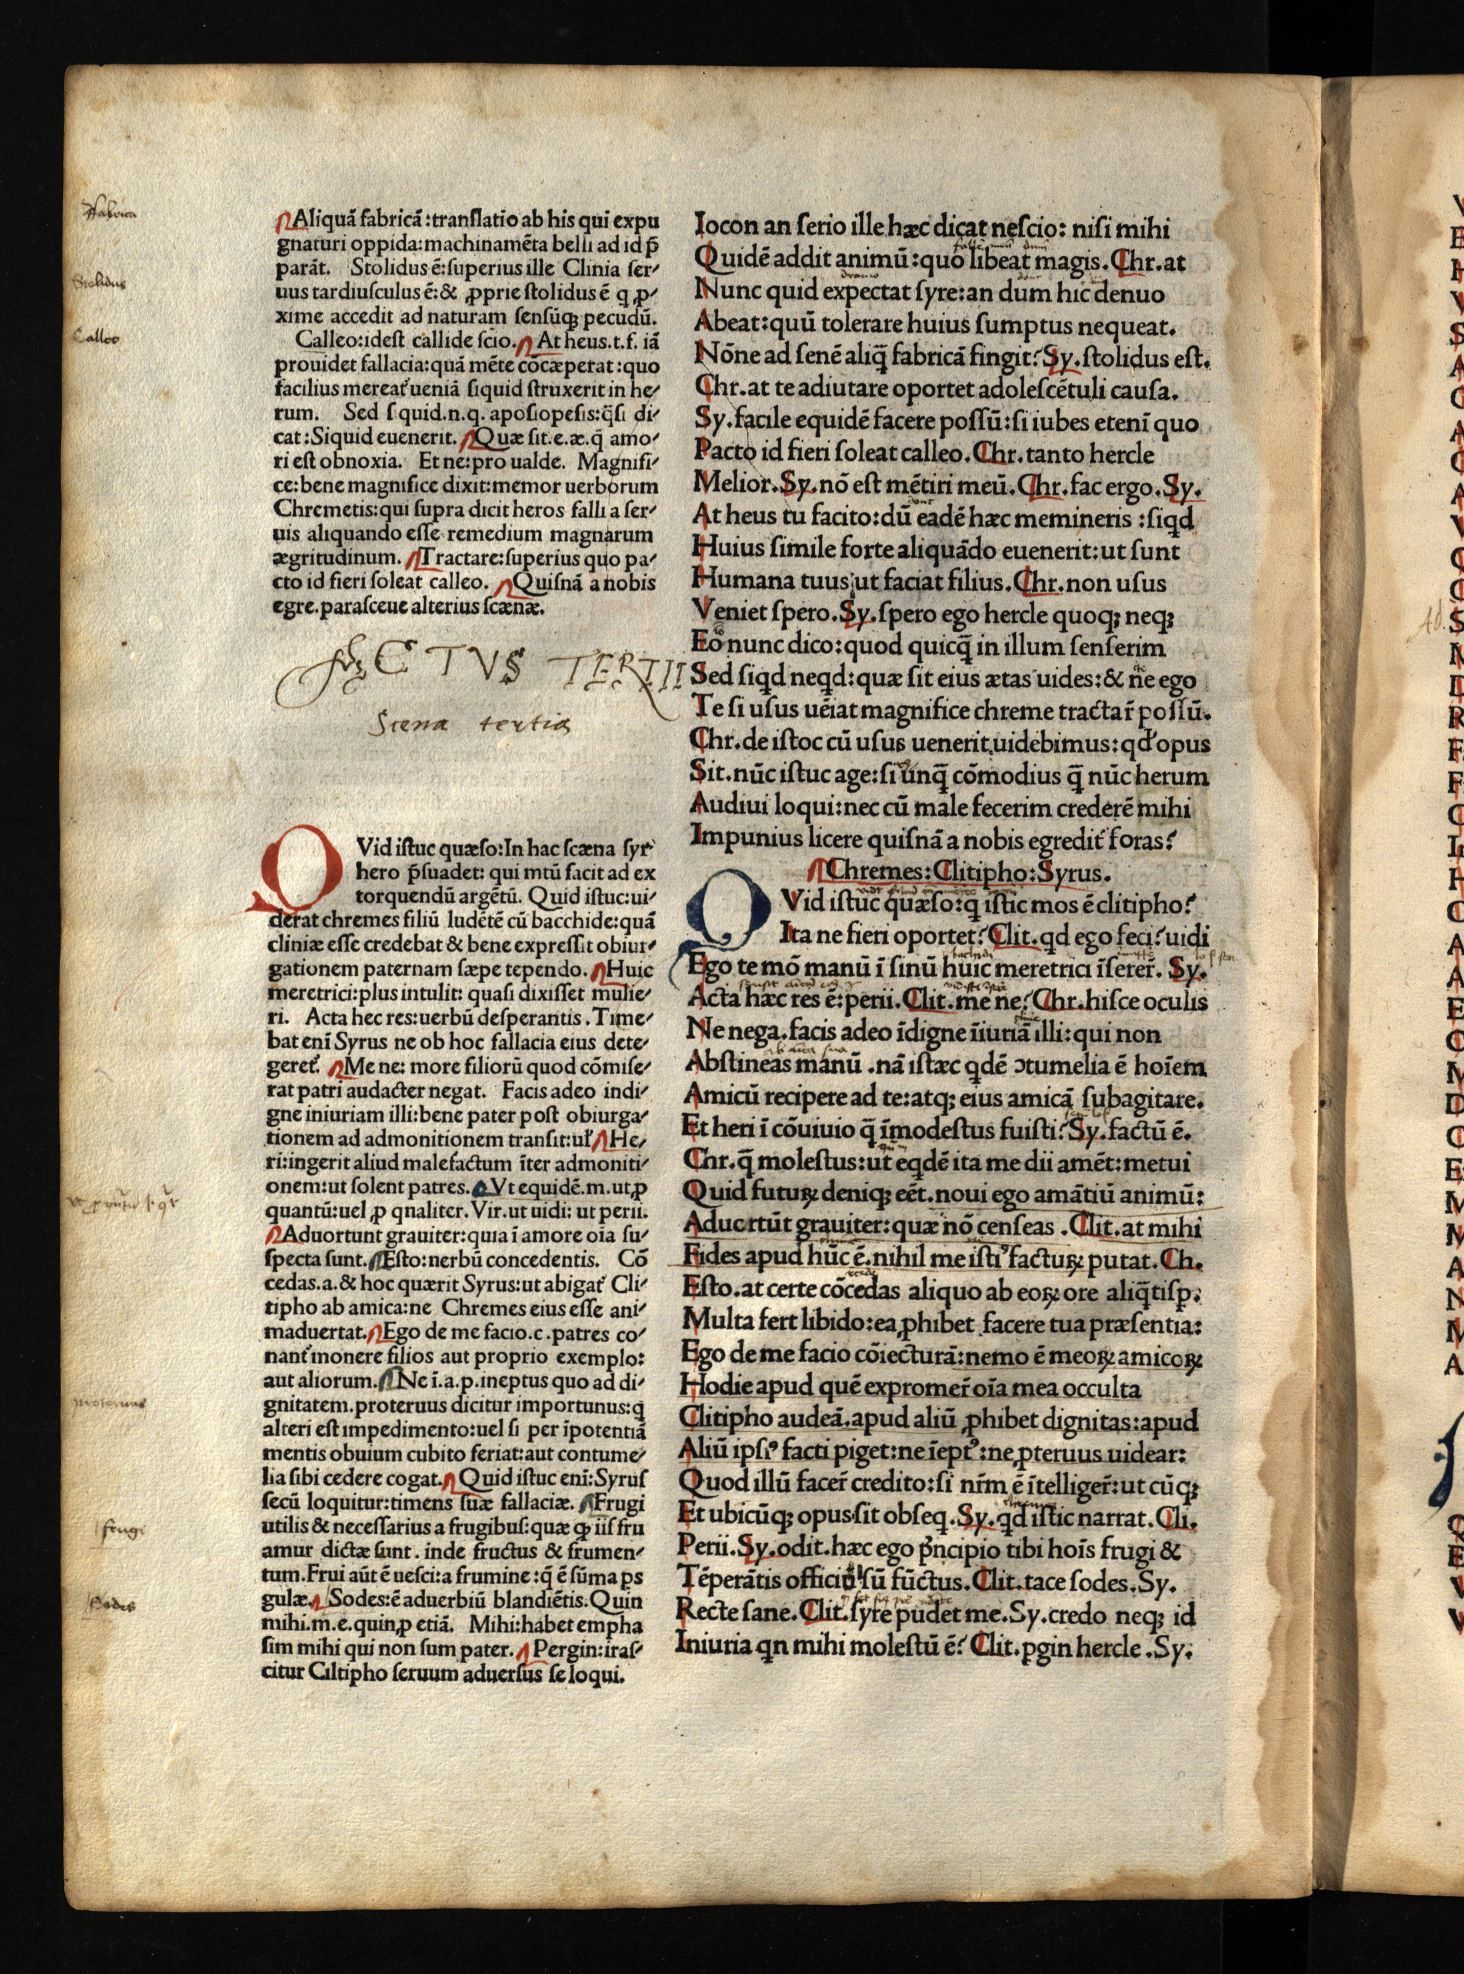 Fabrica
Stolidus
Calleo
proteruus
frugi
Sodes
Aliquã fabricã:tranſlatio ab his qui expu
gnaturi oppida:machinamẽta belli ad id p̃
parãt. Stolidus ẽ:ſuperius ille Clinia ſer⸗
uus tardiuſculus ẽ:& ꝓprie ſtolidus ẽ q ꝓ⸗
xime accedit ad naturam ſenſũqꝫ pecudũ.
Calleo:ideſt callide ſcio. At heus.t.f. iã
prouidet fallacia:quã mẽte cõcæperat:quo
facilius mereat᷑ ueniã ſiquid ſtruxerit in he⸗
rum. Sed ſ quid.n.q. apoſiopeſis:q̃ſi di⸗
cat:Siquid euenerit. Quæ ſit.e.æ.q̃ amo⸗
ri eſt obnoxia. Et ne:pro ualde. Magnifi⸗
ce:bene magnifice dixit:memor uerborum
Chremetis:qui ſupra dicit heros falli a ſer⸗
uis aliquando eſſe remedium magnarum
ægritudinum. Tractare:ſuperius quo pa⸗
cto id fieri ſoleat calleo. Quiſnã a nobis
egre.paraſceue alterius ſcænæ.
ACTVS TERTII
Scena tertia
QVid iſtuc quæſo:In hac ſcæna ſyr᷑
hero p̃ſuadet: qui mtũ facit ad ex
torquendũ argẽtũ. Quid iſtuc:ui⸗
derat chremes filiũ ludẽtẽ cũ bacchide:quã
cliniæ eſſe credebat & bene expreſſit obiur⸗
gationem paternam ſæpe tependo. Huic
meretrici:plus intulit: quaſi dixiſſet mulie⸗
ri. Acta hec res:uerbũ deſperantis. Time⸗
bat eni᷑ Syrus ne ob hoc fallacia eius dete⸗
geret᷑. Me ne: more filiorũ quod cõmiſe⸗
rat patri audacter negat. Facis adeo indi⸗
gne iniuriam illi:bene pater poſt obiurga⸗
tionem ad admonitionem tranſit:ul᷑ He⸗
ri:ingerit aliud malefactum ĩter admoniti⸗
onem:ut ſolent patres. Vt equidẽ.m.ut,ꝓ
quantũ:uel ꝓ qnaliter. Vir.ut uidi: ut perii.
Aduortunt grauiter:quia ĩ amore oĩa ſu⸗
ſpecta ſunt. Eſto:nerbũ concedentis. Cõ
cedas.a.& hoc quærit Syrus:ut abigat᷑ Cli⸗
tipho ab amica:ne Chremes eius eſſe ani⸗
maduertat. Ego de me facio.c.patres co⸗
nant᷑ monere filios aut proprio exemplo:
aut aliorum. Ne ĩ.a.p.ineptus quo ad di⸗
gnitatem.proteruus dicitur importunus:q̃
alteri eſt impedimento:uel ſi per ĩpotentiã
mentis obuium cubito feriat:aut contume⸗
lia ſibi cedere cogat. Quid iſtuc eni᷑:Syruſ
ſecũ loquitur:timens ſuæ fallaciæ. Frugi
utilis & neceſſarius a frugibuſ:quæ ꝙ iiſ fru
amur dictæ ſunt. inde fructus & frumen⸗
tum.Frui aũt ẽ ueſci:a frumine:q̃ ẽ ſũma ꝑs
gulæ. Sodes:ẽ aduerbiũ blandiẽtis.Quin
mihi.m.e.quin,ꝓ etiã. Mihi:habet empha
ſim mihi qui non ſum pater. Pergin:iraſ⸗
citur Ciltipho ſeruum aduerſus ſe loqui.
Iocon an ſerio ille hæc dicat neſcio: niſi mihi
Quidẽ addit animũ:quo libeat magis.Chr.at
Nunc quid expectat ſyre:an dum hic denuo
Abeat:quũ tolerare huius ſumptus nequeat.
Nõne ad ſenẽ aliq̃ fabricã fingit? Sy.ſtolidus eſt.
Chr.at te adiutare oportet adoleſcẽtuli cauſa.
Sy.facile equidẽ facere poſſũ:ſi iubes etenĩ quo
Pacto id fieri ſoleat calleo.Chr.tanto hercle
Melior.Sy.nõ eſt mẽtiri meũ.Chr.fac ergo.Sy.
At heus tu facito:dũ eadẽ hæc memineris :ſiqd
Huius ſimile forte aliquãdo euenerit:ut ſunt
Humana tuus ut faciat filius.Chr.non uſus
Veniet ſpero.Sy.ſpero ego hercle quoqꝫ neqꝫ
Eo nunc dico:quod quicq̃ in illum ſenſerim
Sed ſiqd neqd:quæ ſit eius ætas uides:& ne ego
Te ſi uſus uẽiat magnifice chreme tractar᷑ poſſũ.
Chr.de iſtoc cũ uſus uenerit.uidebimus:qđ opus
Sit.nũc iſtuc age:ſi unq̃ cõmodius q̃ nũc herum
Audiui loqui:nec cũ male fecerim crederẽ mihi
Impunius licere quiſnã a nobis egredit᷑ foras?
Chremes:Clitipho:Syrus.
QVid iſtuc quæſo:q̃ iſtic mos ẽ clitipho?
Ita ne fieri oportet? Clit.qd ego feci? uidi
Ego te mõ manũ ĩ ſinũ huic meretrici ĩſerer᷑. Sy.
Acta hæc res ẽ:perii.Clit.me ne? Chr.hiſce oculis
Ne nega.facis adeo ĩdigne ĩiuriã illi:qui non
Abſtineas manũ .nã iſtæc qdẽ ↄtumelia ẽ hoĩem
Amicũ recipere ad te:atqꝫ eius amicã ſubagitare.
Et heri ĩ cõuiuio q̃ ĩmodeſtus fuiſti? Sy.factũ ẽ.
Chr.q̃ moleſtus:ut eqdẽ ita me dii amẽt:metui
Quid futuꝝ deniqꝫ eẽt.noui ego amãtiũ animũ:
Aduertũt grauiter:quæ nõ cenſeas .Clit.at mihi
Fides apud hũc ẽ.nihil me iſtiꝰ factuꝝ putat.Ch.
Eſto.at certe cõcedas aliquo ab eoꝝ ore aliq̃tiſꝑ:
Multa fert libido:ea ꝓhibet facere tua præſentia:
Ego de me facio cõiecturã:nemo ẽ meoꝝ amicoꝝ
Hodie apud quẽ expromer᷑ oĩa mea occulta
Clitipho audeã.apud aliũ ꝓhibet dignitas:apud
Aliũ ipſiꝰ facti piget:ne ĩeptꝰ:ne ꝓteruus uidear:
Quod illũ facer᷑ credito:ſi nr̃m ẽ ĩtelliger᷑:ut cũqꝫ
Et ubicũqꝫ opus ſit obſeq.Sy.qd iſtic narrat.Cli.
Perii.Sy.odit.hæc ego p̃ncipio tibi hoĩs frugi &
Tẽperãtis officiũ ſũ fũctus.Clit.tace ſodes.Sy.
Recte ſane.Clit.ſyre pudet me.Sy.credo neqꝫ id
Iniuria qn mihi moleſtũ ẽ? Clit.ꝑgin hercle.Sy.